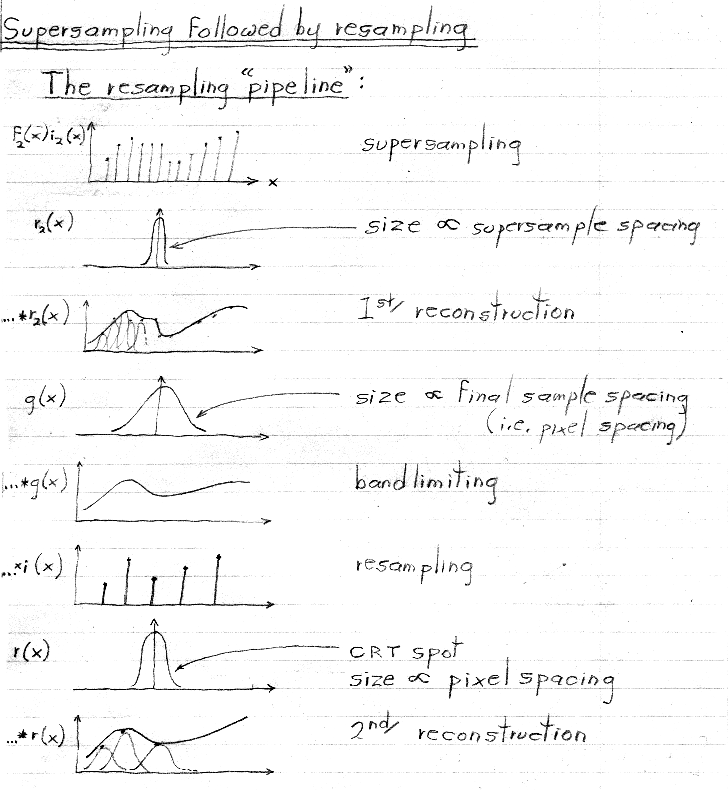 Supersampling followed by resampling
The resampling "pipeline":
F₂(x)i₂(x)
x
supersampling
r₂(x)
size ∝ supersample spacing
...*r₂(x)
1st reconstruction
g(x)
size ∝ final sample spacing
(i.e. pixel spacing)
...*g(x)
bandlimiting
...×i(x)
resampling
r(x)
CRT spot
size ∝ pixel spacing
...*r(x)
2nd reconstruction